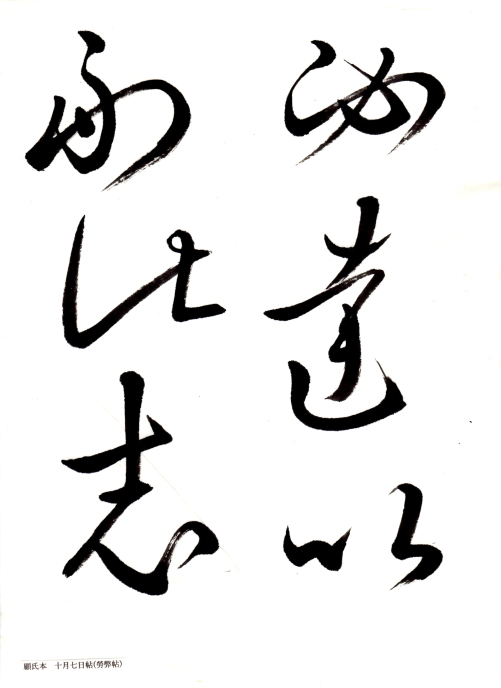 必達以
此志
顧氏本 十月七日帖(勞弊帖)